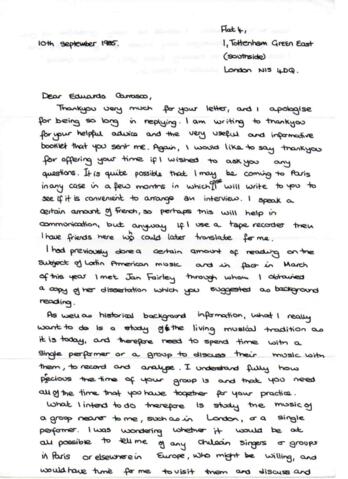 Flat 4,
10th september 1985.
1, Tottenham Green East
(Southside)
London N15 4DQ.
Dear Eduardo Carrasco,
Thankyou very much for your letter, and I apologise
for being so long in replying. I am writing to thankyou
for your helpful advice and the very useful and informative
booklet that you sent me. Again, I would like to say thankyou
for offering your time if I wished to ask you any
questions. It is quite possible that I may be coming to Paris
in any case in a few months in which case I will write to you to
see if it is convenient to arrange an interview. I speak a
certain amount of French, so perhaps this will help in
communication, but anyway if I use a tape recorder then
I have friends here who could later translate for me.
I had previously done a certain amount of reading on the
subject of Latin American music and in fact in March
of this year I met Jan Fairley through whom I obtained
a copy of her dissertation which you suggested as background
reading.
As well as historical background information, what I really
want to do is a study of the living musical tradition as
it is today, and therefore need to spend time with a
single performer or a group to discuss their music with
them, to record and analyse. I understand fully how
precious the time of your group is and that you need
all of the time that you have together for your practice.
What I intend to do therefore is study the music of
a group nearer to me, such as in London, or a single
performer. I was wondering whether it would be at
all possible to tell me of any chilean singers or groups
in Paris or elsewhere in Europe, who might be willing, and
would have time for me to visit them and discuss and